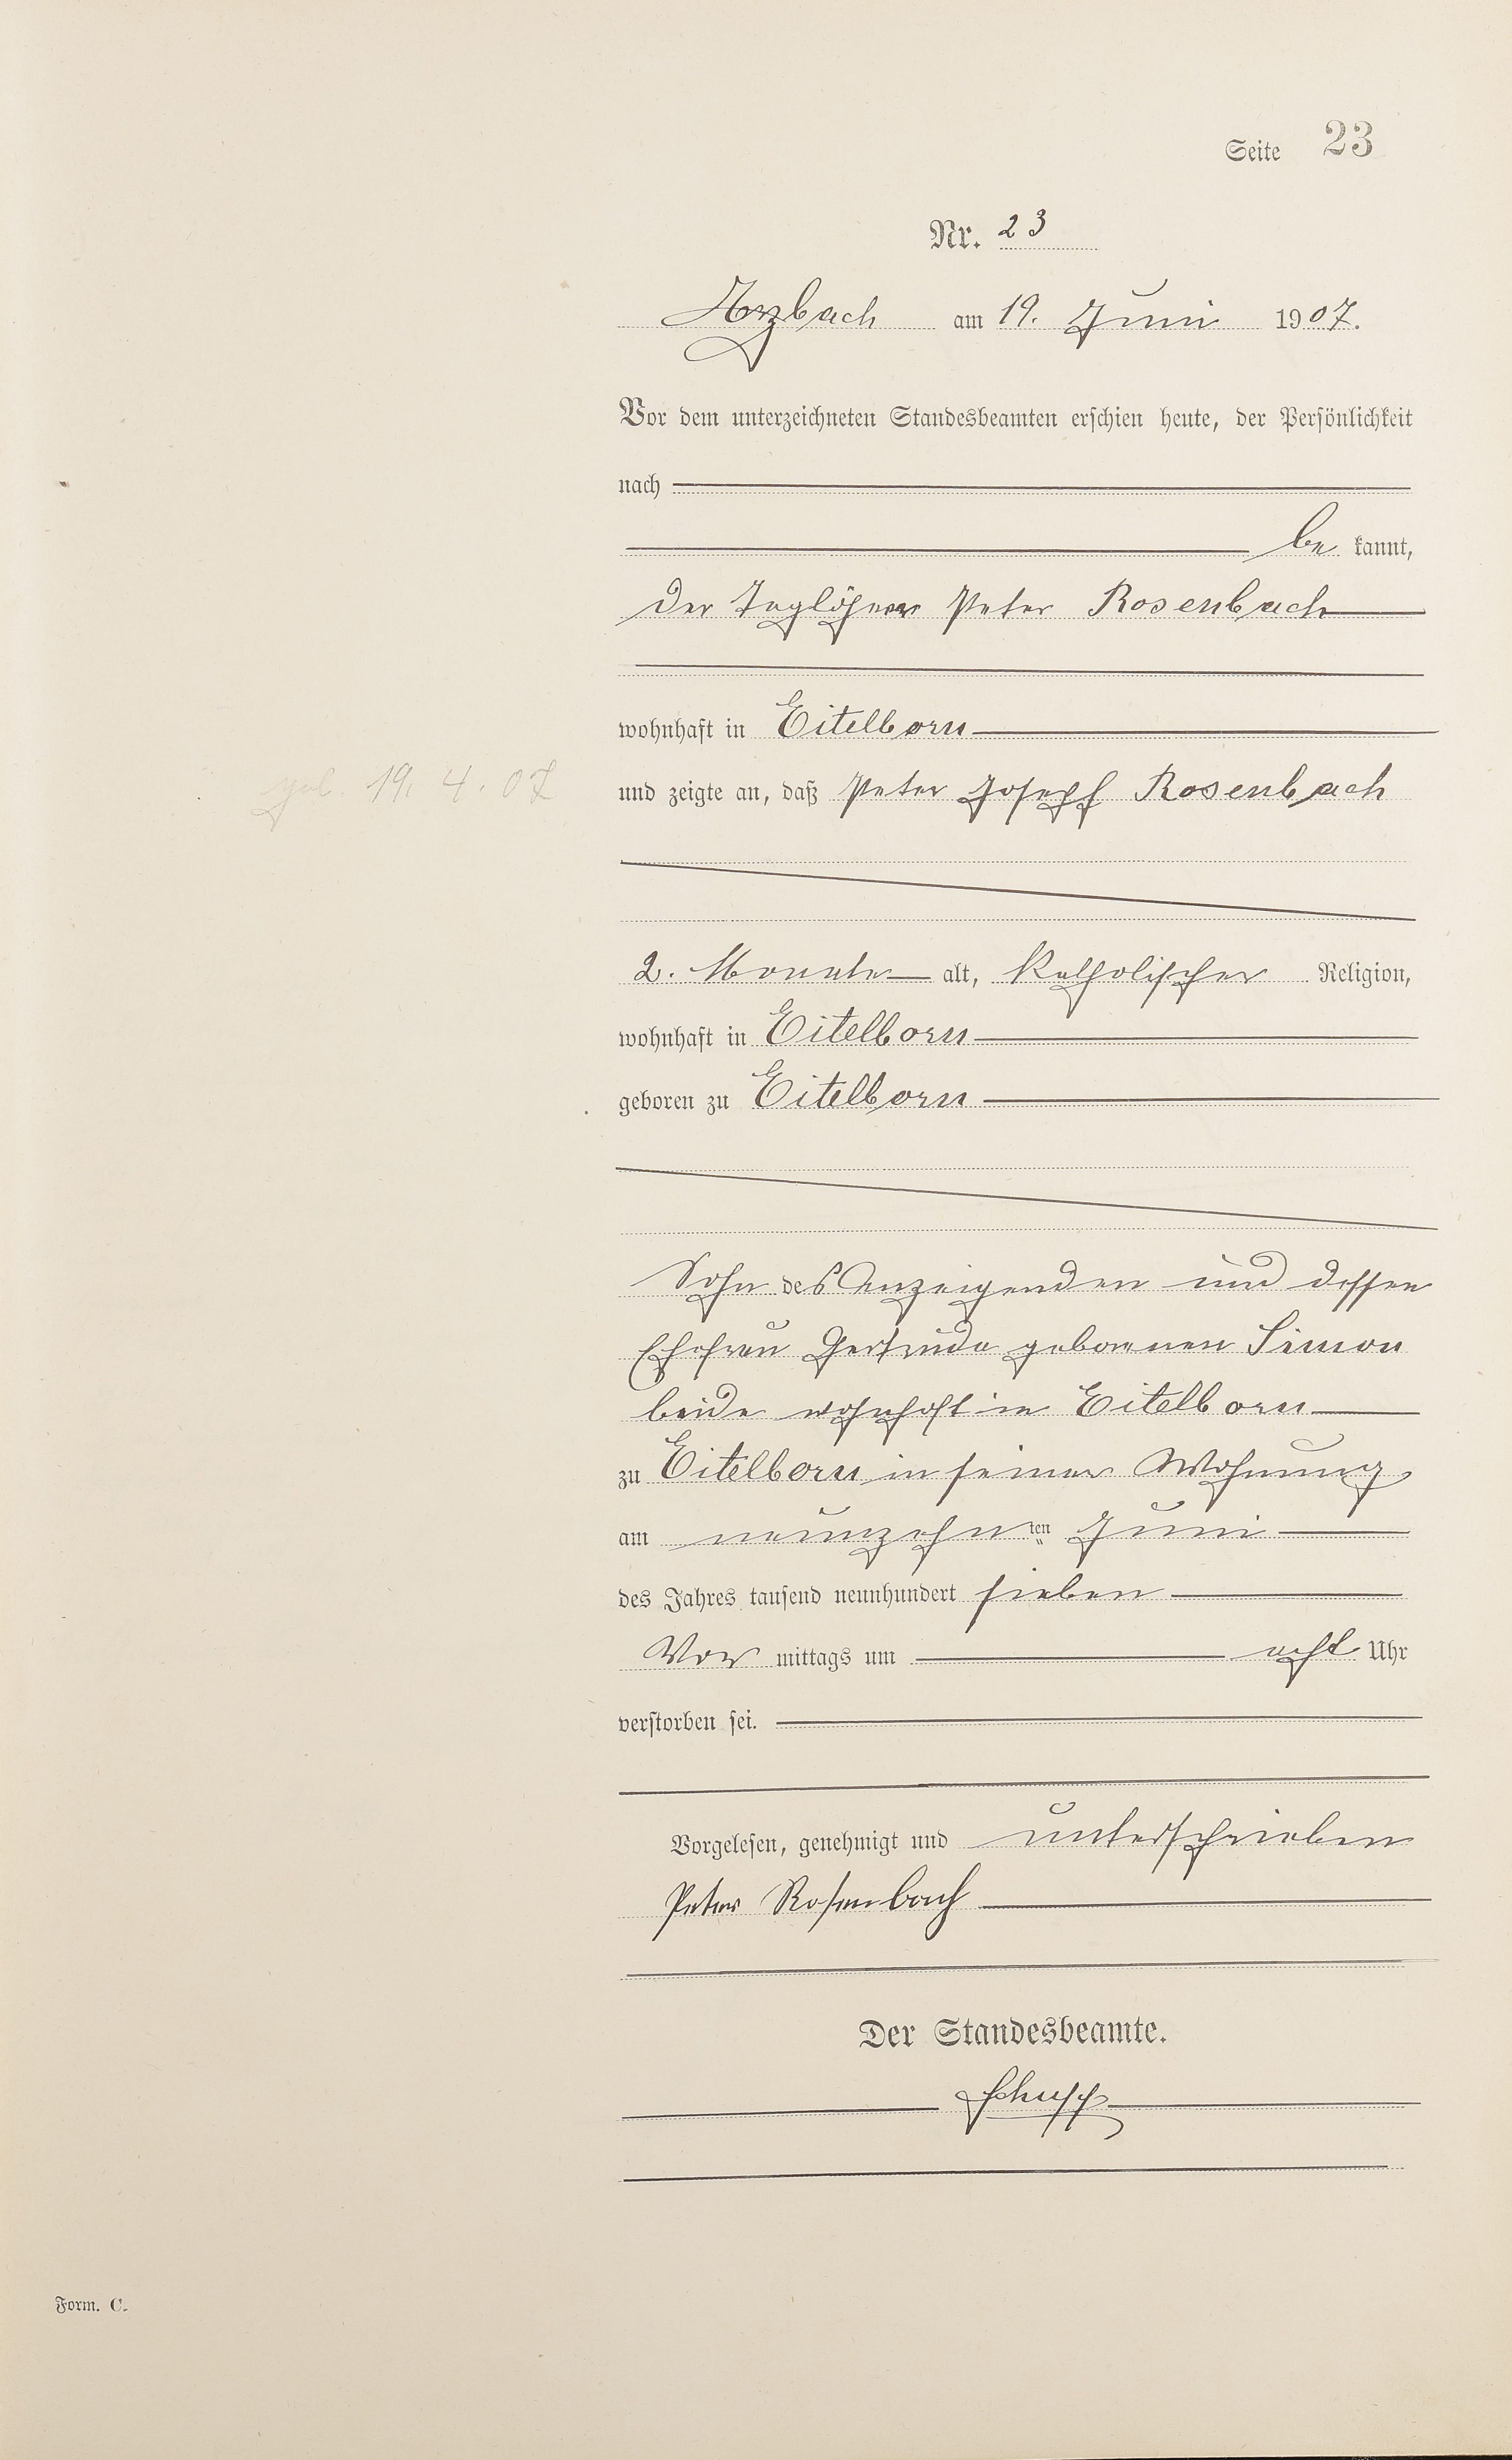 Seite 23
Nr. 23
Arzbach am 19. Juni 1907.
Vor dem unterzeichneten Standesbeamten erschien heute, der Persönlichkeit
nach
be kannt,
der Taglöhner Peter Rosenbach
wohnhaft in Eitelborn
geb. 19. 4. 07
und zeigte an, daß Peter Josepf Rosenbach
2. Monate alt, Katholischer Religion,
wohnhaft in Eitelborn
geboren zu Eitelborn
Sohn des Anzeigenden und dessen
Ehefrau Gertrude geborenen Simon
beide wohnhaft in Eitelborn
zu Eitelborn in seiner Wohnung
am neunzehnten Juni
des Jahres tausend neunhundert sieben
Vor mittags um acht Uhr
verstorben sei.
Vorgelesen, genehmigt und unterschrieben
Peter Rosenbach
Der Standesbeamte.
Schupp
Form. C.